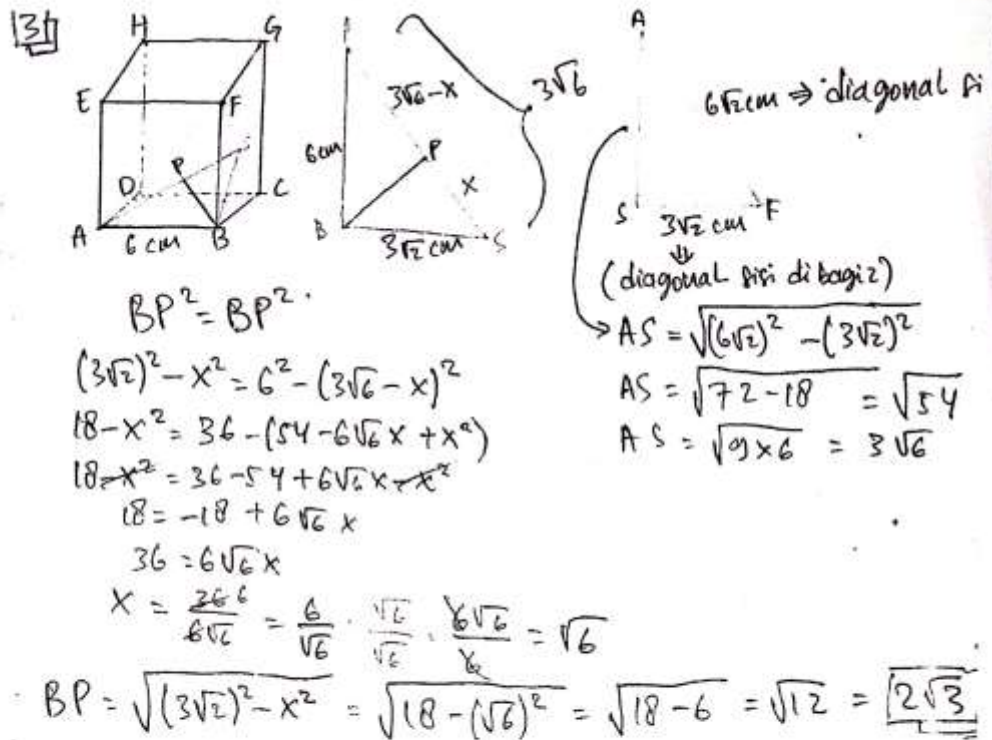 3
H G
E F
P
D C
A B
6 cm
6 cm
3√6-x
3√6
P
x
B 3√2 cm S
A
6√2 cm ⇒ diagonal si
S 3√2 cm F
⇓
(diagonal sisi dibagi 2)
AS = √(6√2)² - (3√2)²
AS = √72-18 = √54
AS = √9×6 = 3√6
BP² = BP²
(3√2)² - x² = 6² - (3√6 - x)²
18 - x² = 36 - (54 - 6√6x + x²)
18 - x² = 36 - 54 + 6√6 x - x²
18 = -18 + 6√6 x
36 = 6√6 x
x = 36 6/6√6 = 6/√6 · √6/√6 · 6√6/6 = √6
BP = √(3√2)² - x² = √18 - (√6)² = √18 - 6 = √12 = 2√3